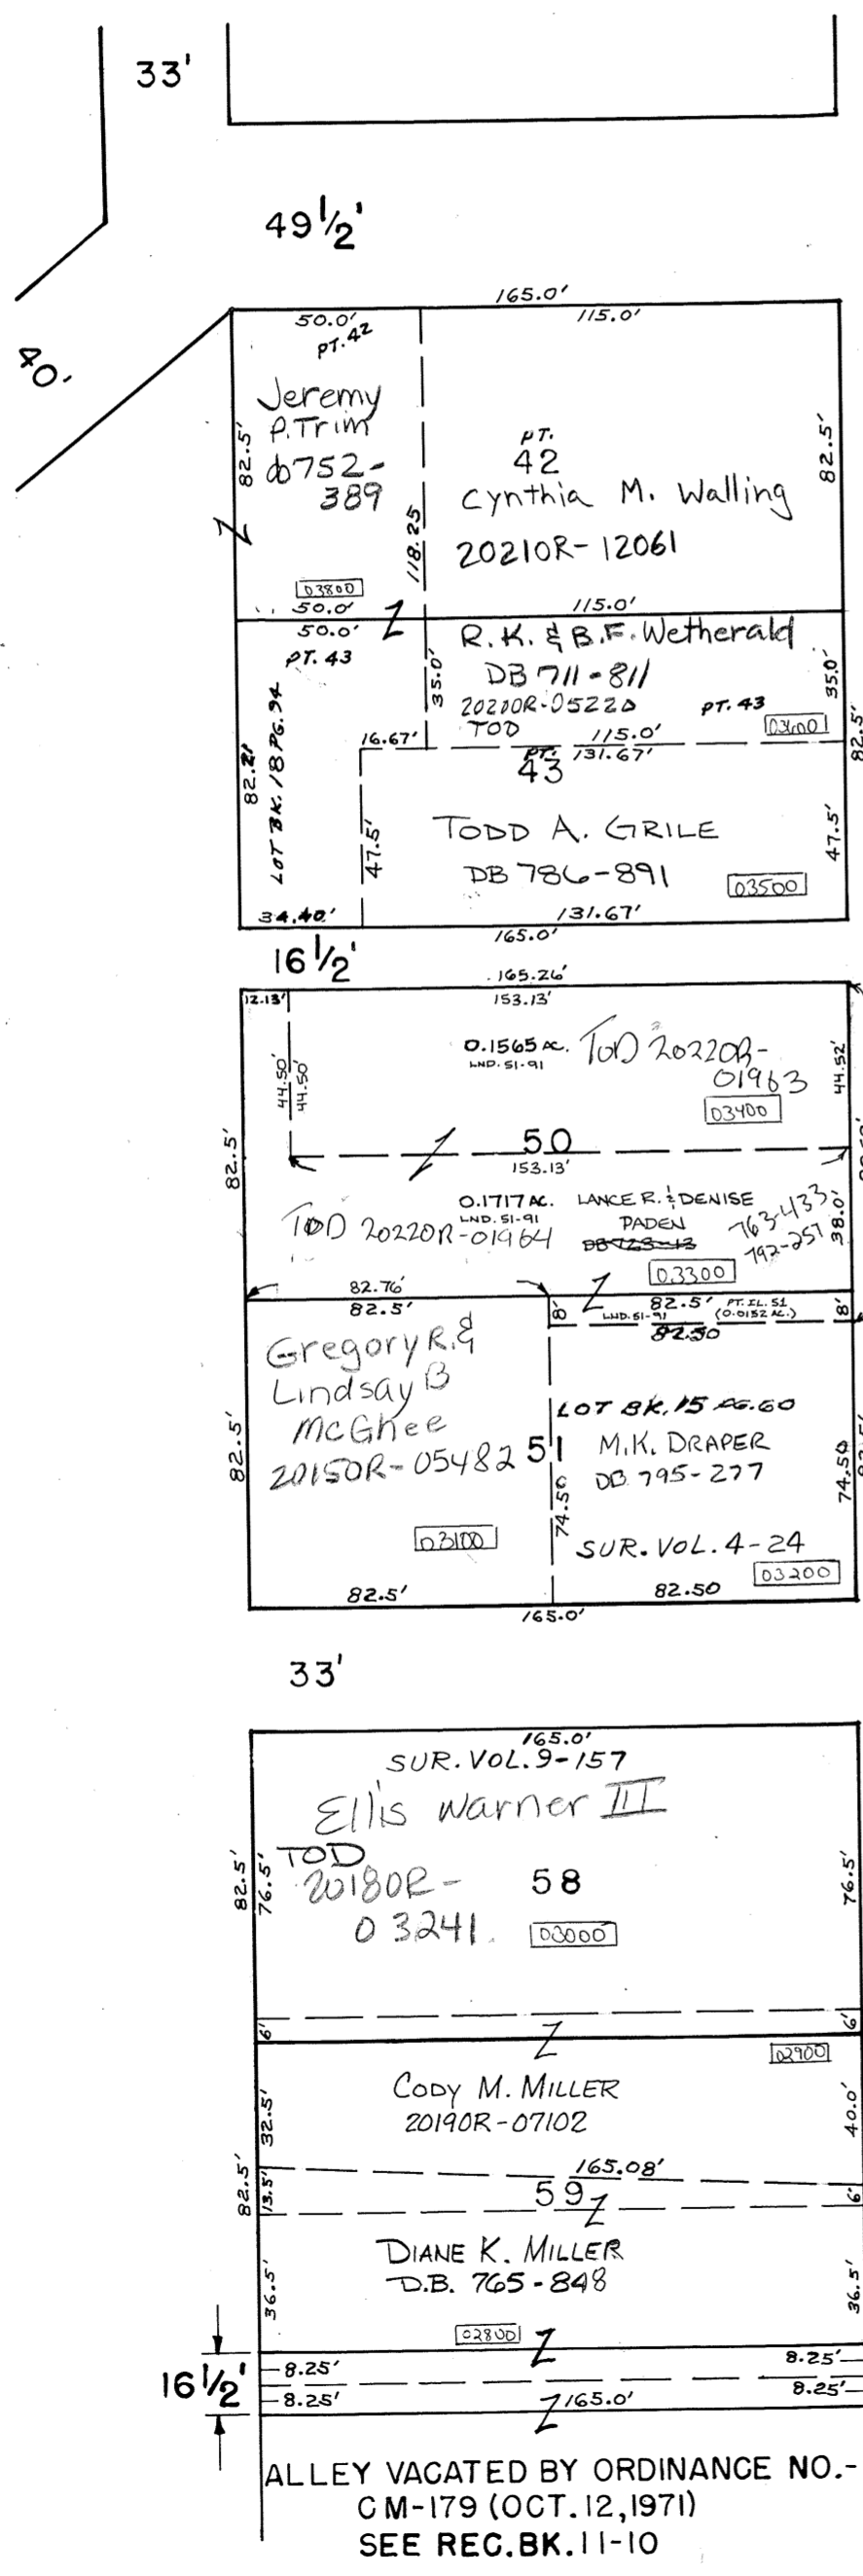 33'
49 1/2'
40.
165.0'
50.0'
115.0'
PT. 42
Jeremy
P. Trim
db752-
389
82.5'
118.25
03800
50.0'
PT.
42
Cynthia M. Walling
20210R-12061
82.5'
115.0'
50.0'
PT. 43
R.K. & B.F. Wetherald
DB 711-811
20200R-05220
TOD
PT. 43
03600
35.0'
35.0'
82.5'
LOT BK. 18 PG. 94
82.2'
16.67'
115.0'
131.67'
PT.
43
47.5'
TODD A. GRILE
DB 786-891
03500
47.5'
34.40'
131.67'
165.0'
16 1/2'
165.26'
12.13'
153.13'
44.50'
44.50'
0.1565 AC.
LND. 51-91
TOD 20220R-
01963
03400
44.52'
82.5'
50
153.13'
TOD 20220R-01964
0.1717 AC.
LND. 51-91
LANCE R. & DENISE
PADEN
DB 728-13
763-433
792-257
03300
38.0'
82.76'
82.5'
8'
82.5'
LND. 51-91
PT. IL. 51
(0.0152 AC.)
8'
82.50
Gregory R. &
Lindsay B
McGhee
20150R-05482
03100
82.5'
51
LOT BK. 15 PG. 60
M.K. DRAPER
DB. 795-277
74.50
74.50
82.5'
SUR. VOL. 4-24
03200
82.5'
82.50
165.0'
33'
165.0'
SUR. VOL. 9-157
Ellis Warner III
TOD
20180R-
03241
58
03000
82.5'
76.5'
76.5'
6'
6'
02900
CODY M. MILLER
20190R-07102
32.5'
40.0'
165.08'
82.5'
13.5'
59
6'
DIANE K. MILLER
D.B. 765-848
36.5'
36.5'
02800
16 1/2'
8.25'
8.25'
8.25'
165.0'
8.25'
ALLEY VACATED BY ORDINANCE NO.-
CM-179 (OCT. 12, 1971)
SEE REC. BK. 11-10